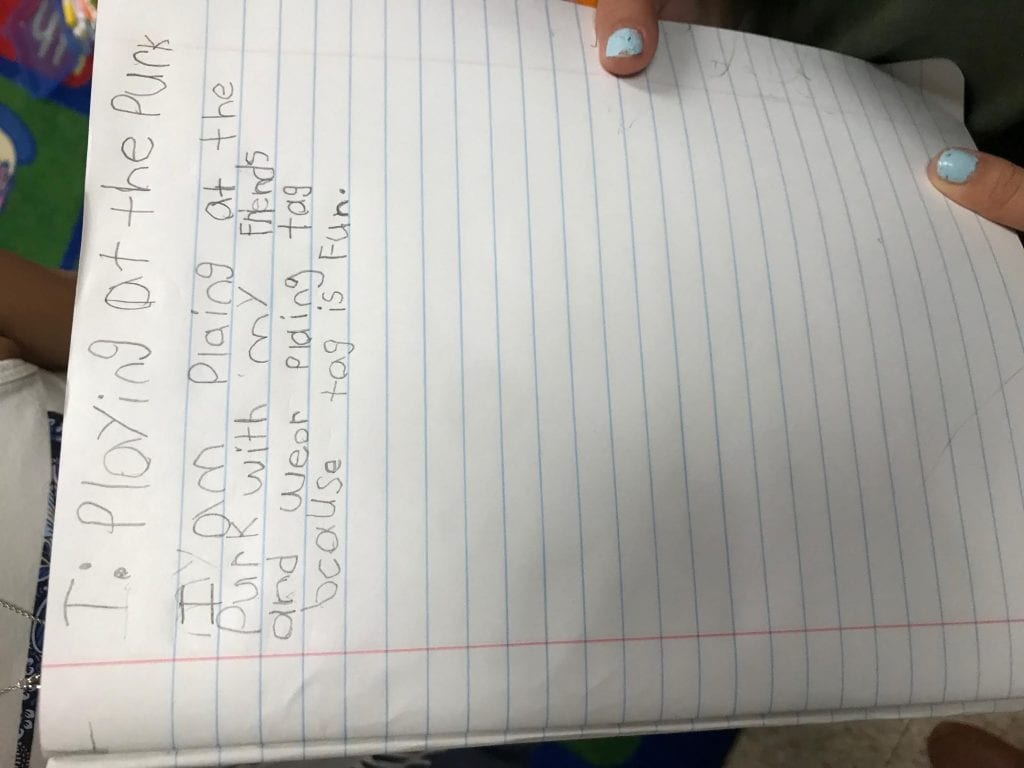 T: Playing at the Purk
I am Plaing at the
Purk with my Friends
and wear plaing tag
because tag is Fun.